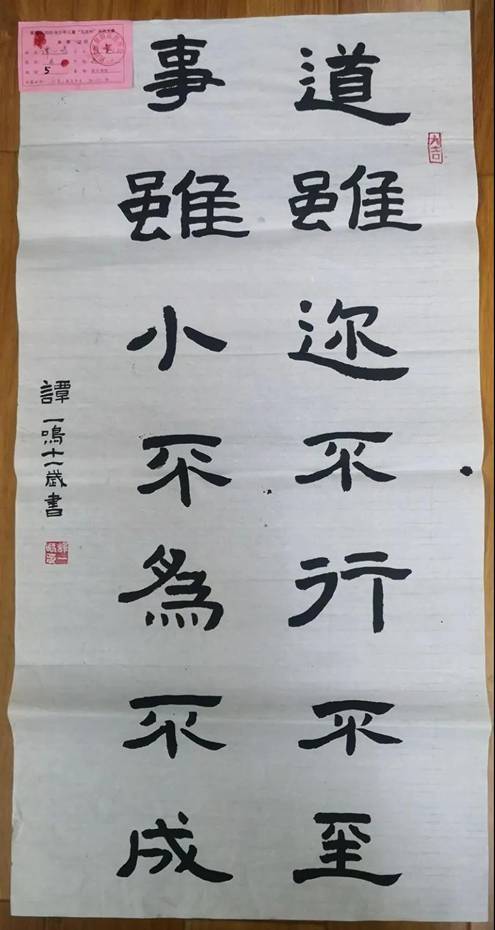 道雖迩不行不至
事雖小不為不成
譚一鳴十一歲書
5